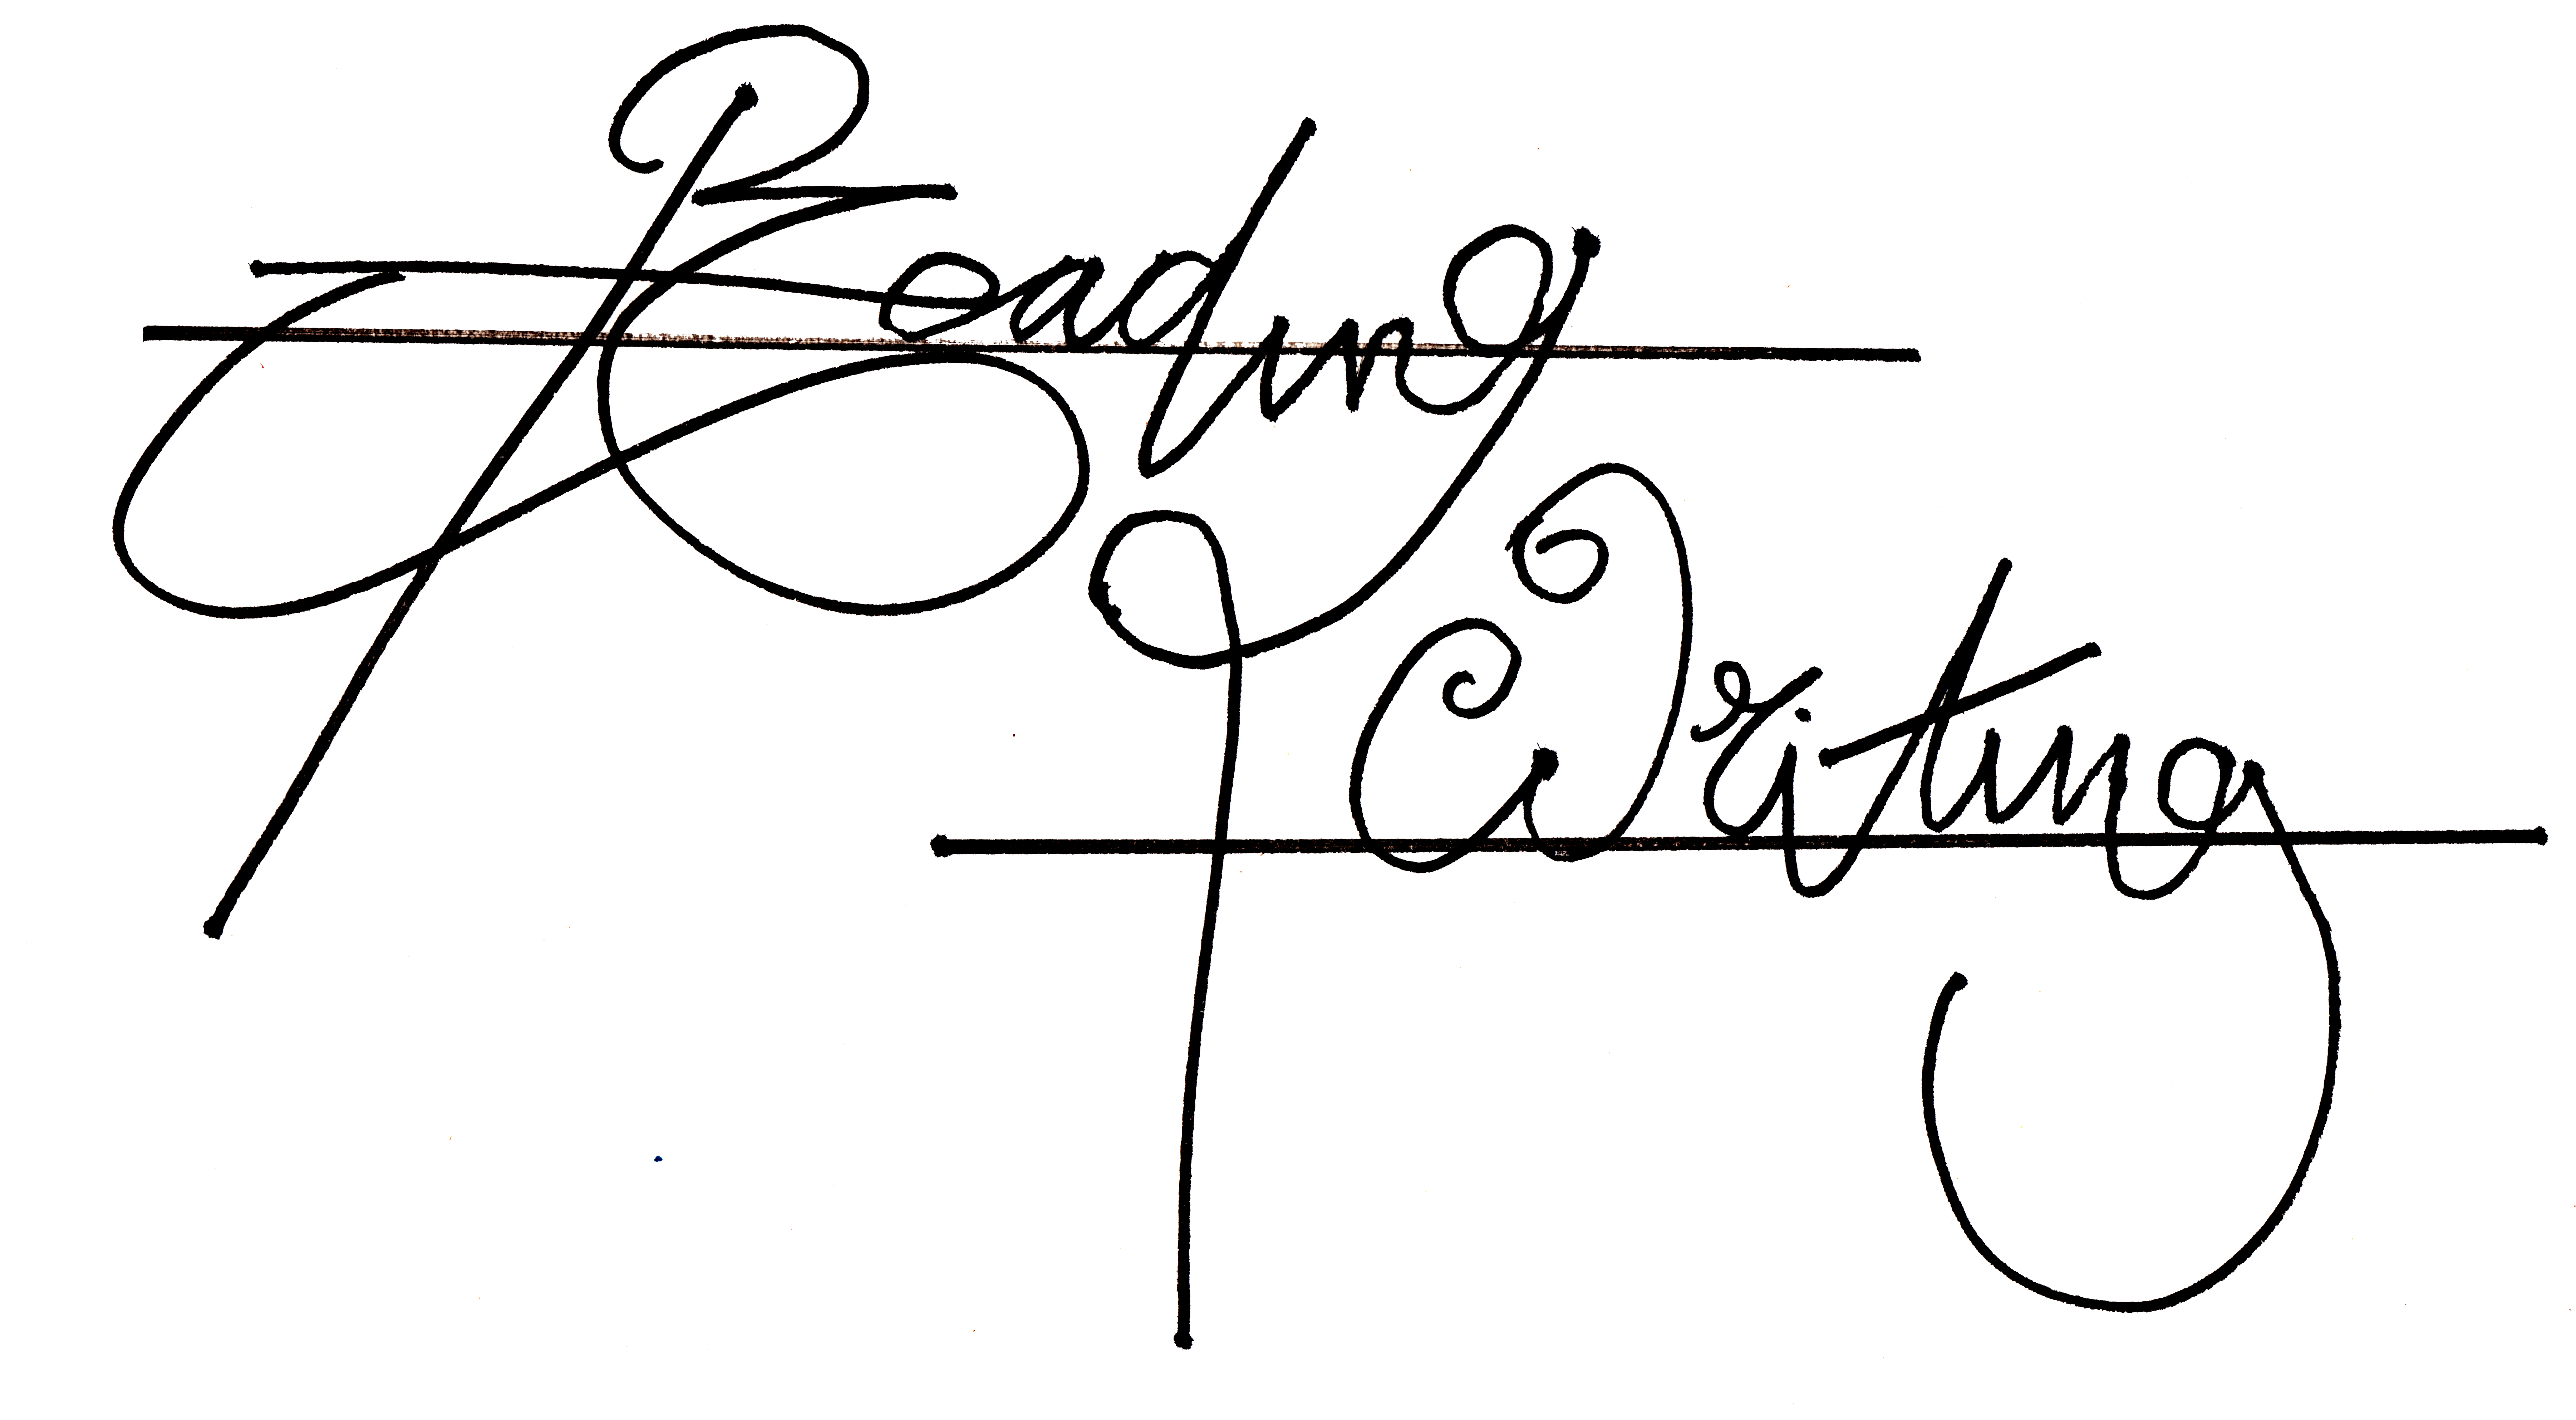 Reading
Writing